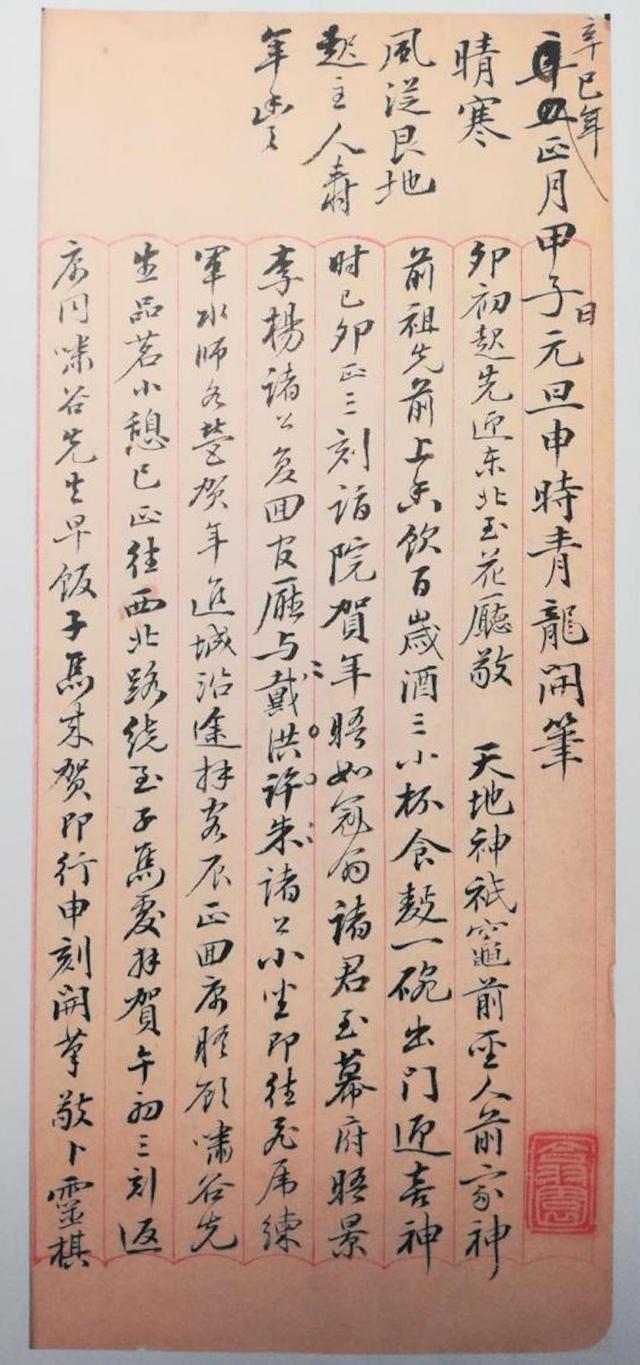 辛巳年
正月甲子日元旦申時青龍開筆
晴寒
風從艮地
起主人壽
年豊
卯初起先迎东北至花廳敬 天地神祇竈前聖人前家神
前祖先前上香飲百歲酒三小杯食麵一碗出門迎喜神
时已卯正三刻詣院賀年晤如冠翁諸君至幕府晤景
李楊諸公复回官廳与戴洪许朱諸公小坐即往飛虎練
軍水师各營贺年進城沿途拜客辰正回寓晤顾嘯谷先
生品茗小憩巳正往西北路绕至子馬處拜賀午初三刻返
寓同嘯谷先生早饭子馬来贺即行申刻開筆敬卜靈棋